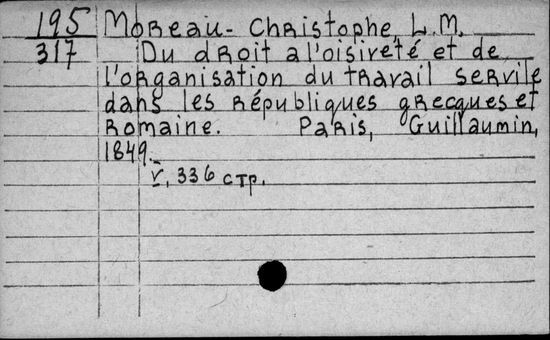 195 Moreau- Christophe, L.M.
317 Du droit a l'oisiveté et de
l'organisation du travail servile
dans les républiques grecques et
romaine. Paris, Guillaumin,
1849.-
V, 336 стр.